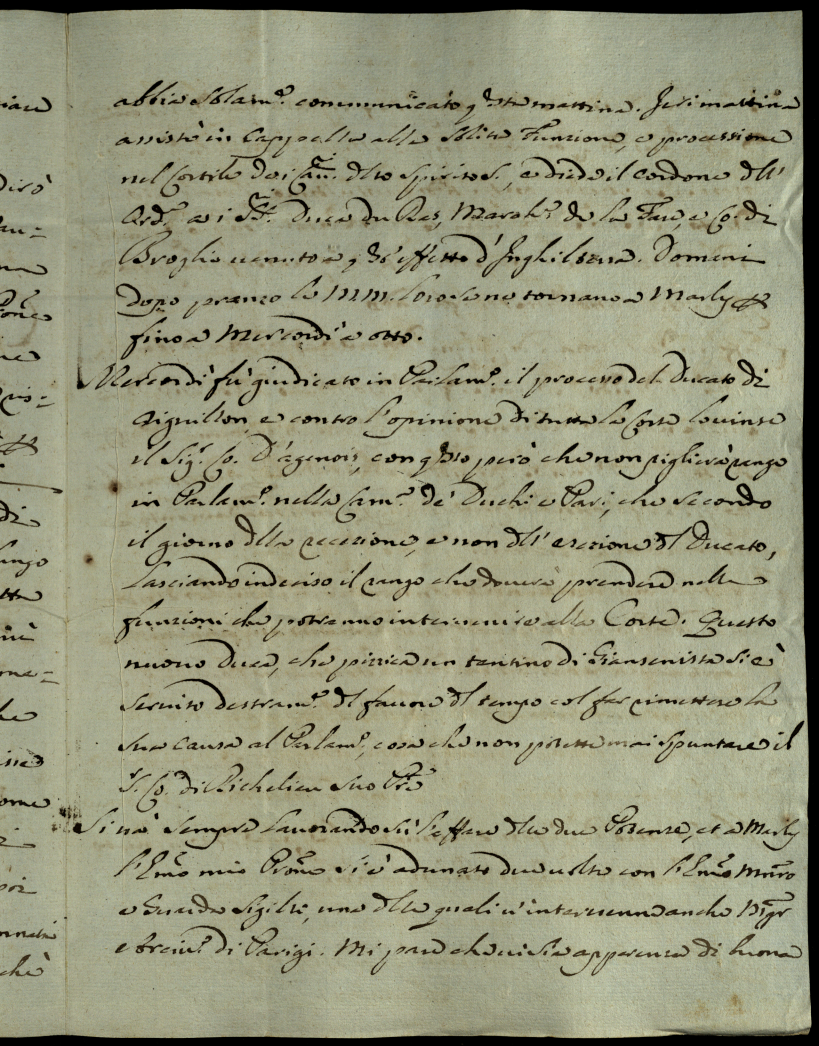 abbia solam.e communicato q.sta mattina. Jeri mattina
assistè in Cappella alla solita Funzione, e processione
nel Cortile de i Cau.ri dello Spirito S., e diede il cordone dell'
Ord.e a i SS.ri Duca du Ras, Maresh.l de la Fare, e Co. di
Broglio venuto a q.sto effetto d'Inghilterra. Domani
dopo pranzo le MM. loro se ne tornano a Marly
fino a Mercordì a otto.
Mercordì fù giudicato in Parlam.o il processo del Ducato di
Aiguillon, e contro l'opinione di tutta la Corte lo uinse
il Sig.r Co. D'agenois, con q.sto però che non piglierà rango
in Parlam.o nella Cam.a de' Duchi e Pari, che secondo
il giorno dlla recezione, e non dell'erezione dl Ducato,
lasciando indeciso il rango che douerà prendere nelle
funzioni che potranno interuenire alla Corte. Questo
nuouo Duca, che pizzica un tantino di Giansenista si è
seruito destram.e dl fauore dl tempo col far rimettere la
sua causa al Parlam.o, cosa che non potette mai spuntare il
S. Co. di Richelieu suo P.re
Si uà sempre lauorando sù l'affare dlle due Potenze, et a Marly
l'Em̃o mio Pro͂ne si è adunato due uolte con l'Em̃o
e Guarda Sigilli, una dlle quali u'interuenne anche Mgr
Arciu.o di Parigi. Mi pare che ui sia apparenza di buona
iace
dirò
ma
di
ungo
che
poi
che